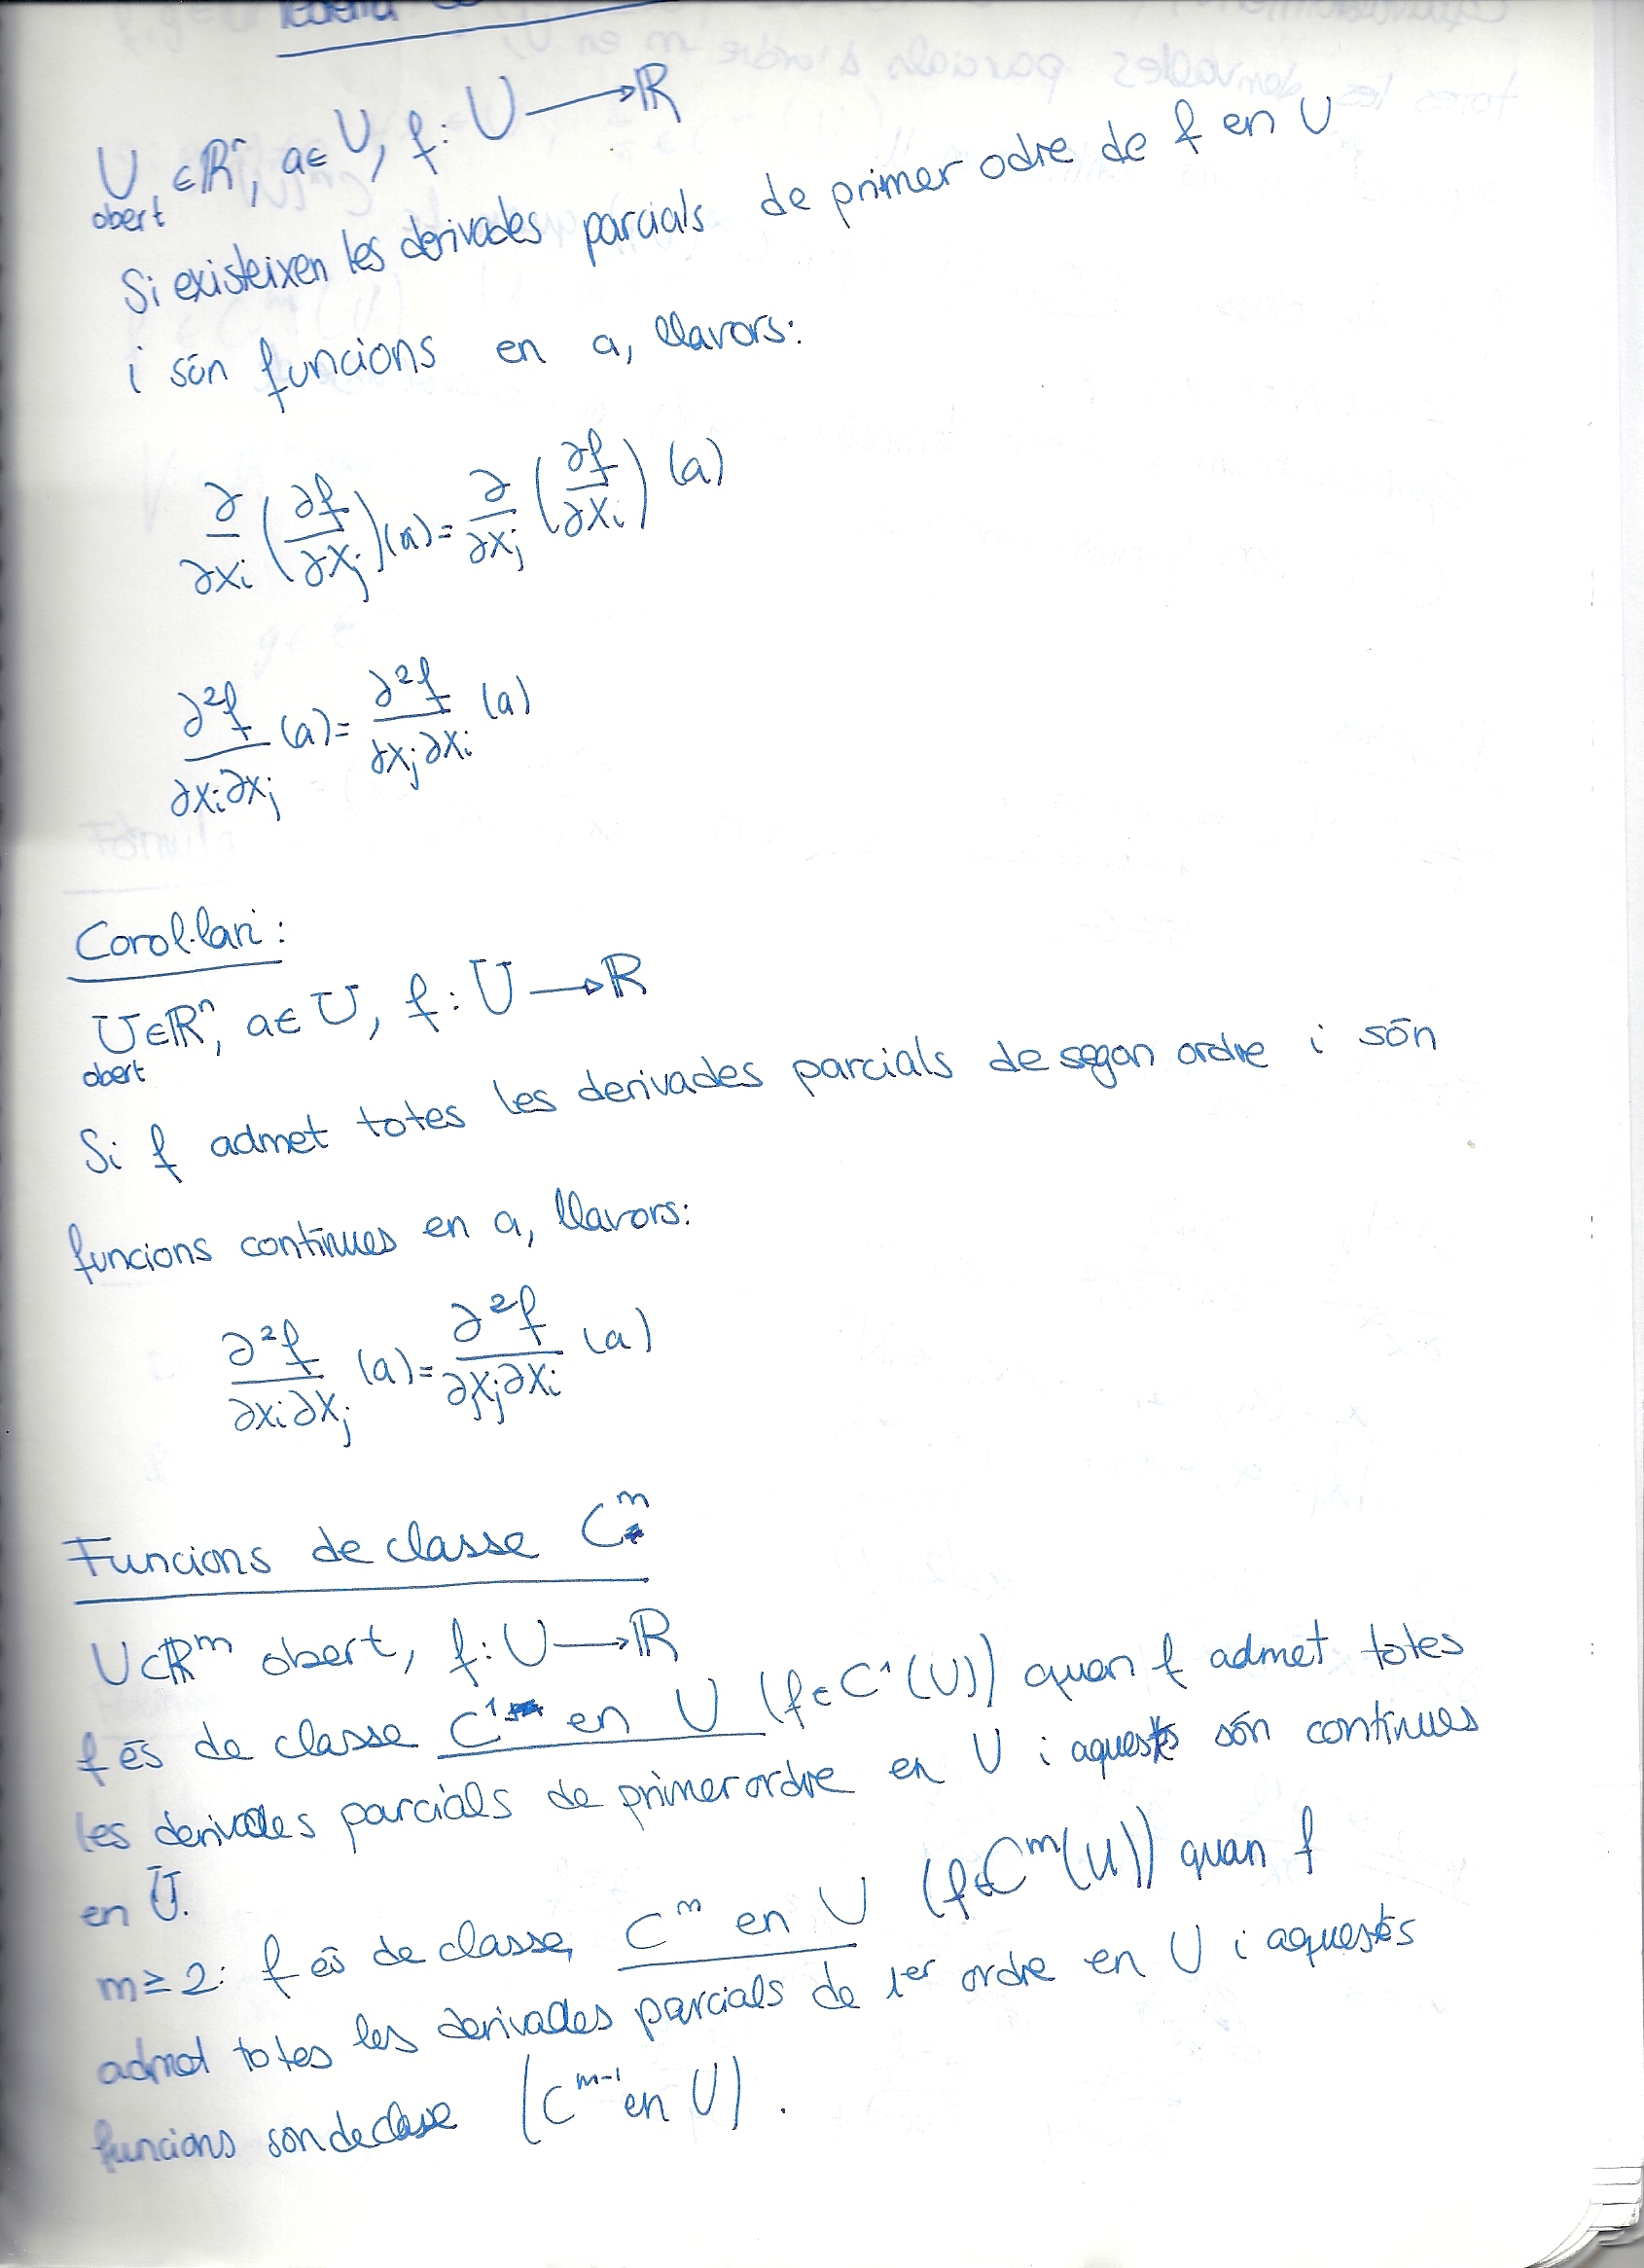 Teorema
U ∈ ℝⁿ, a ∈ U, f: U ⟶ ℝ
obert
Si existeixen les derivades parcials de primer odre de f en U
i són funcions en a, llavors:
∂/∂xi (∂f/∂xj)(a) = ∂/∂xj (∂f/∂xi)(a)
∂²f/∂xi∂xj (a) = ∂²f/∂xj∂xi (a)
Corol·lari:
U ∈ ℝⁿ, a ∈ U, f: U ⟶ ℝ
obert
Si f admet totes les derivades parcials de segon ordre i són
funcions contínues en a, llavors:
∂²f/∂xi∂xj (a) = ∂²f/∂xj∂xi (a)
Funcions de classe Cᵐ
U ⊂ ℝᵐ obert, f: U ⟶ ℝ
f és de classe C¹ en U (f ∈ C¹(U)) quan f admet totes
les derivades parcials de primer ordre en U i aquests són contínues
en U.
m ≥ 2: f és de classe Cᵐ en U (f ∈ Cᵐ(U)) quan f
admet totes les derivades parcials de 1er ordre en U i aquestes
funcions son de classe (Cᵐ⁻¹ en U).